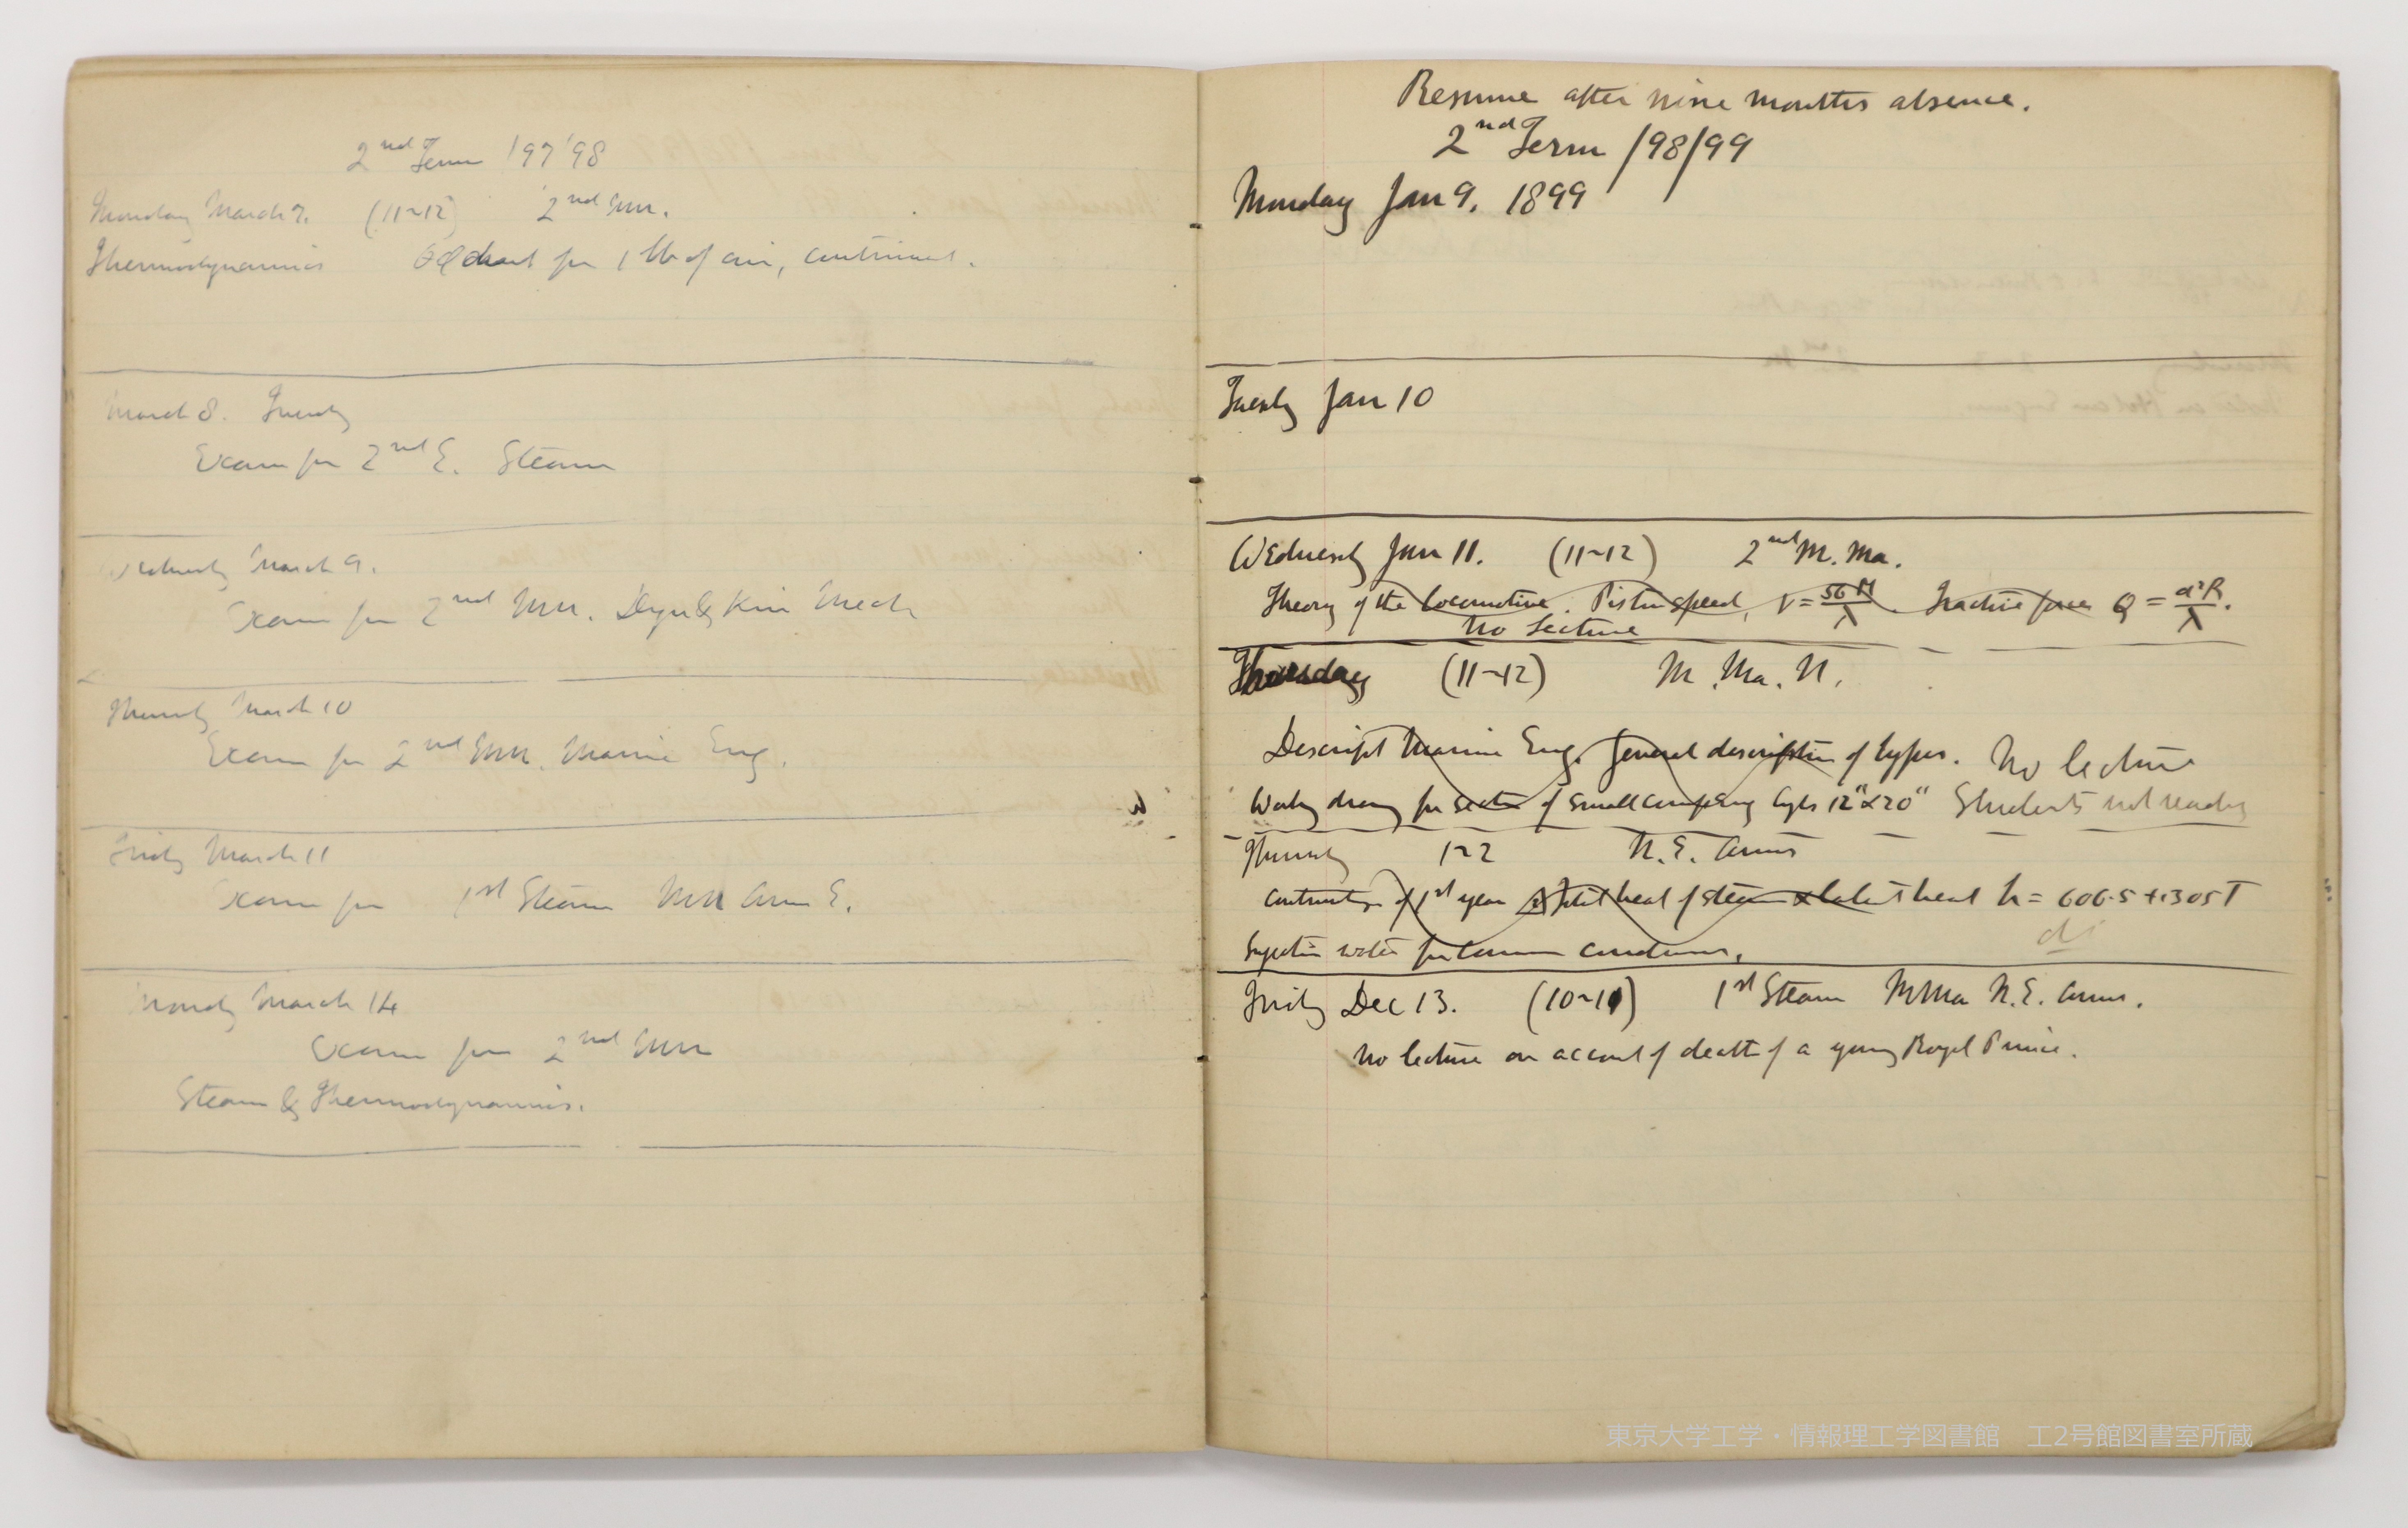 2nd Term '97 '98
Monday March 7. (11~12) 2nd MM.
Thermodynamics θφ chart for 1 lb of air, continued.
March 8. Tuesday
Exam for 2nd E. Steam
Wednesday March 9.
Exam for 2nd MM. Dyn & Kin Mech
Thursday March 10
Exam for 2nd MM. Marine Eng.
Friday March 11
Exam for 1st Steam Arms E.
Monday March 14
Exam for 2nd MM
Steam & Thermodynamics.
Resume after nine months absence.
2nd Term /98/99
Monday Jan 9. 1899
Tuesday Jan 10
Wednesday Jan 11. (11~12) 2nd M. Ma.
Theory of the Locomotive. Piston speed, V = 56 M/λ. Tractive force Q = d²R/λ.
No Lecture
Thursday (11~12) M. Ma. N.
Descript Marine Eng. General description of types. No lecture
Workg drawg for of small comp Eng Cyls 12" x 20" Students not ready
Thursday 1~2 N. E. Arms
Continuation of 1st year Total heat of steam & latent heat h = 606.5 + .305T
do
Injection water for Common condensers.
Friday Dec 13. (10~11) 1st Steam M Ma N. E. Arms.
No lecture on account of death of a young Royal Prince.
東京大学工学・情報理工学図書館 工2号館図書室所蔵